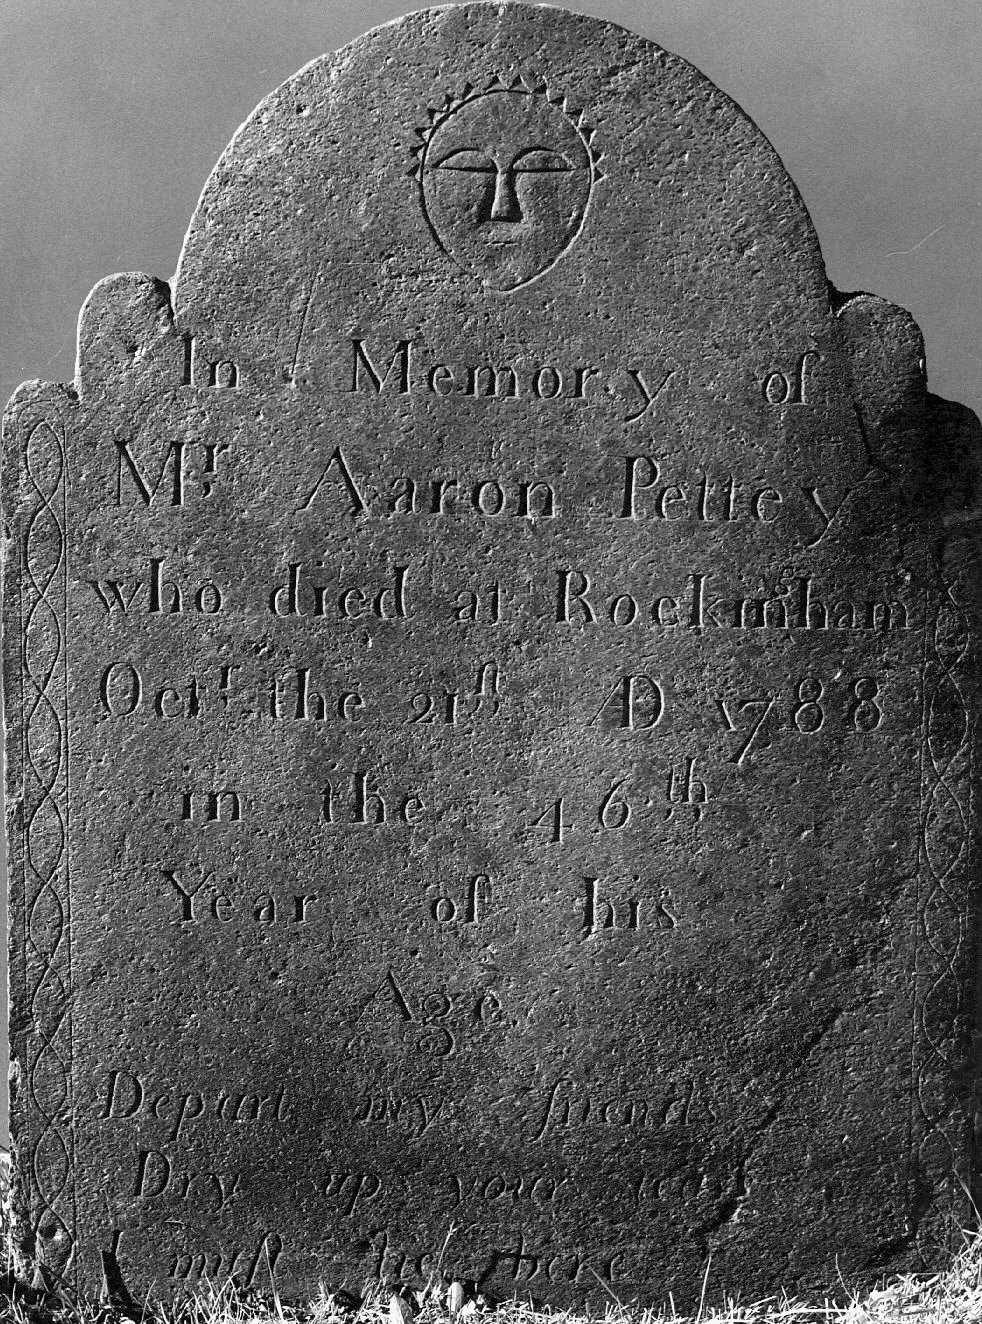 In Memory of
Mr. Aaron Pettey
who died at Rockinham
Octr. the 21st. AD 1788
in the 46.th
Year of his
Age
Depart my friends
Dry up your tears
I must lie here